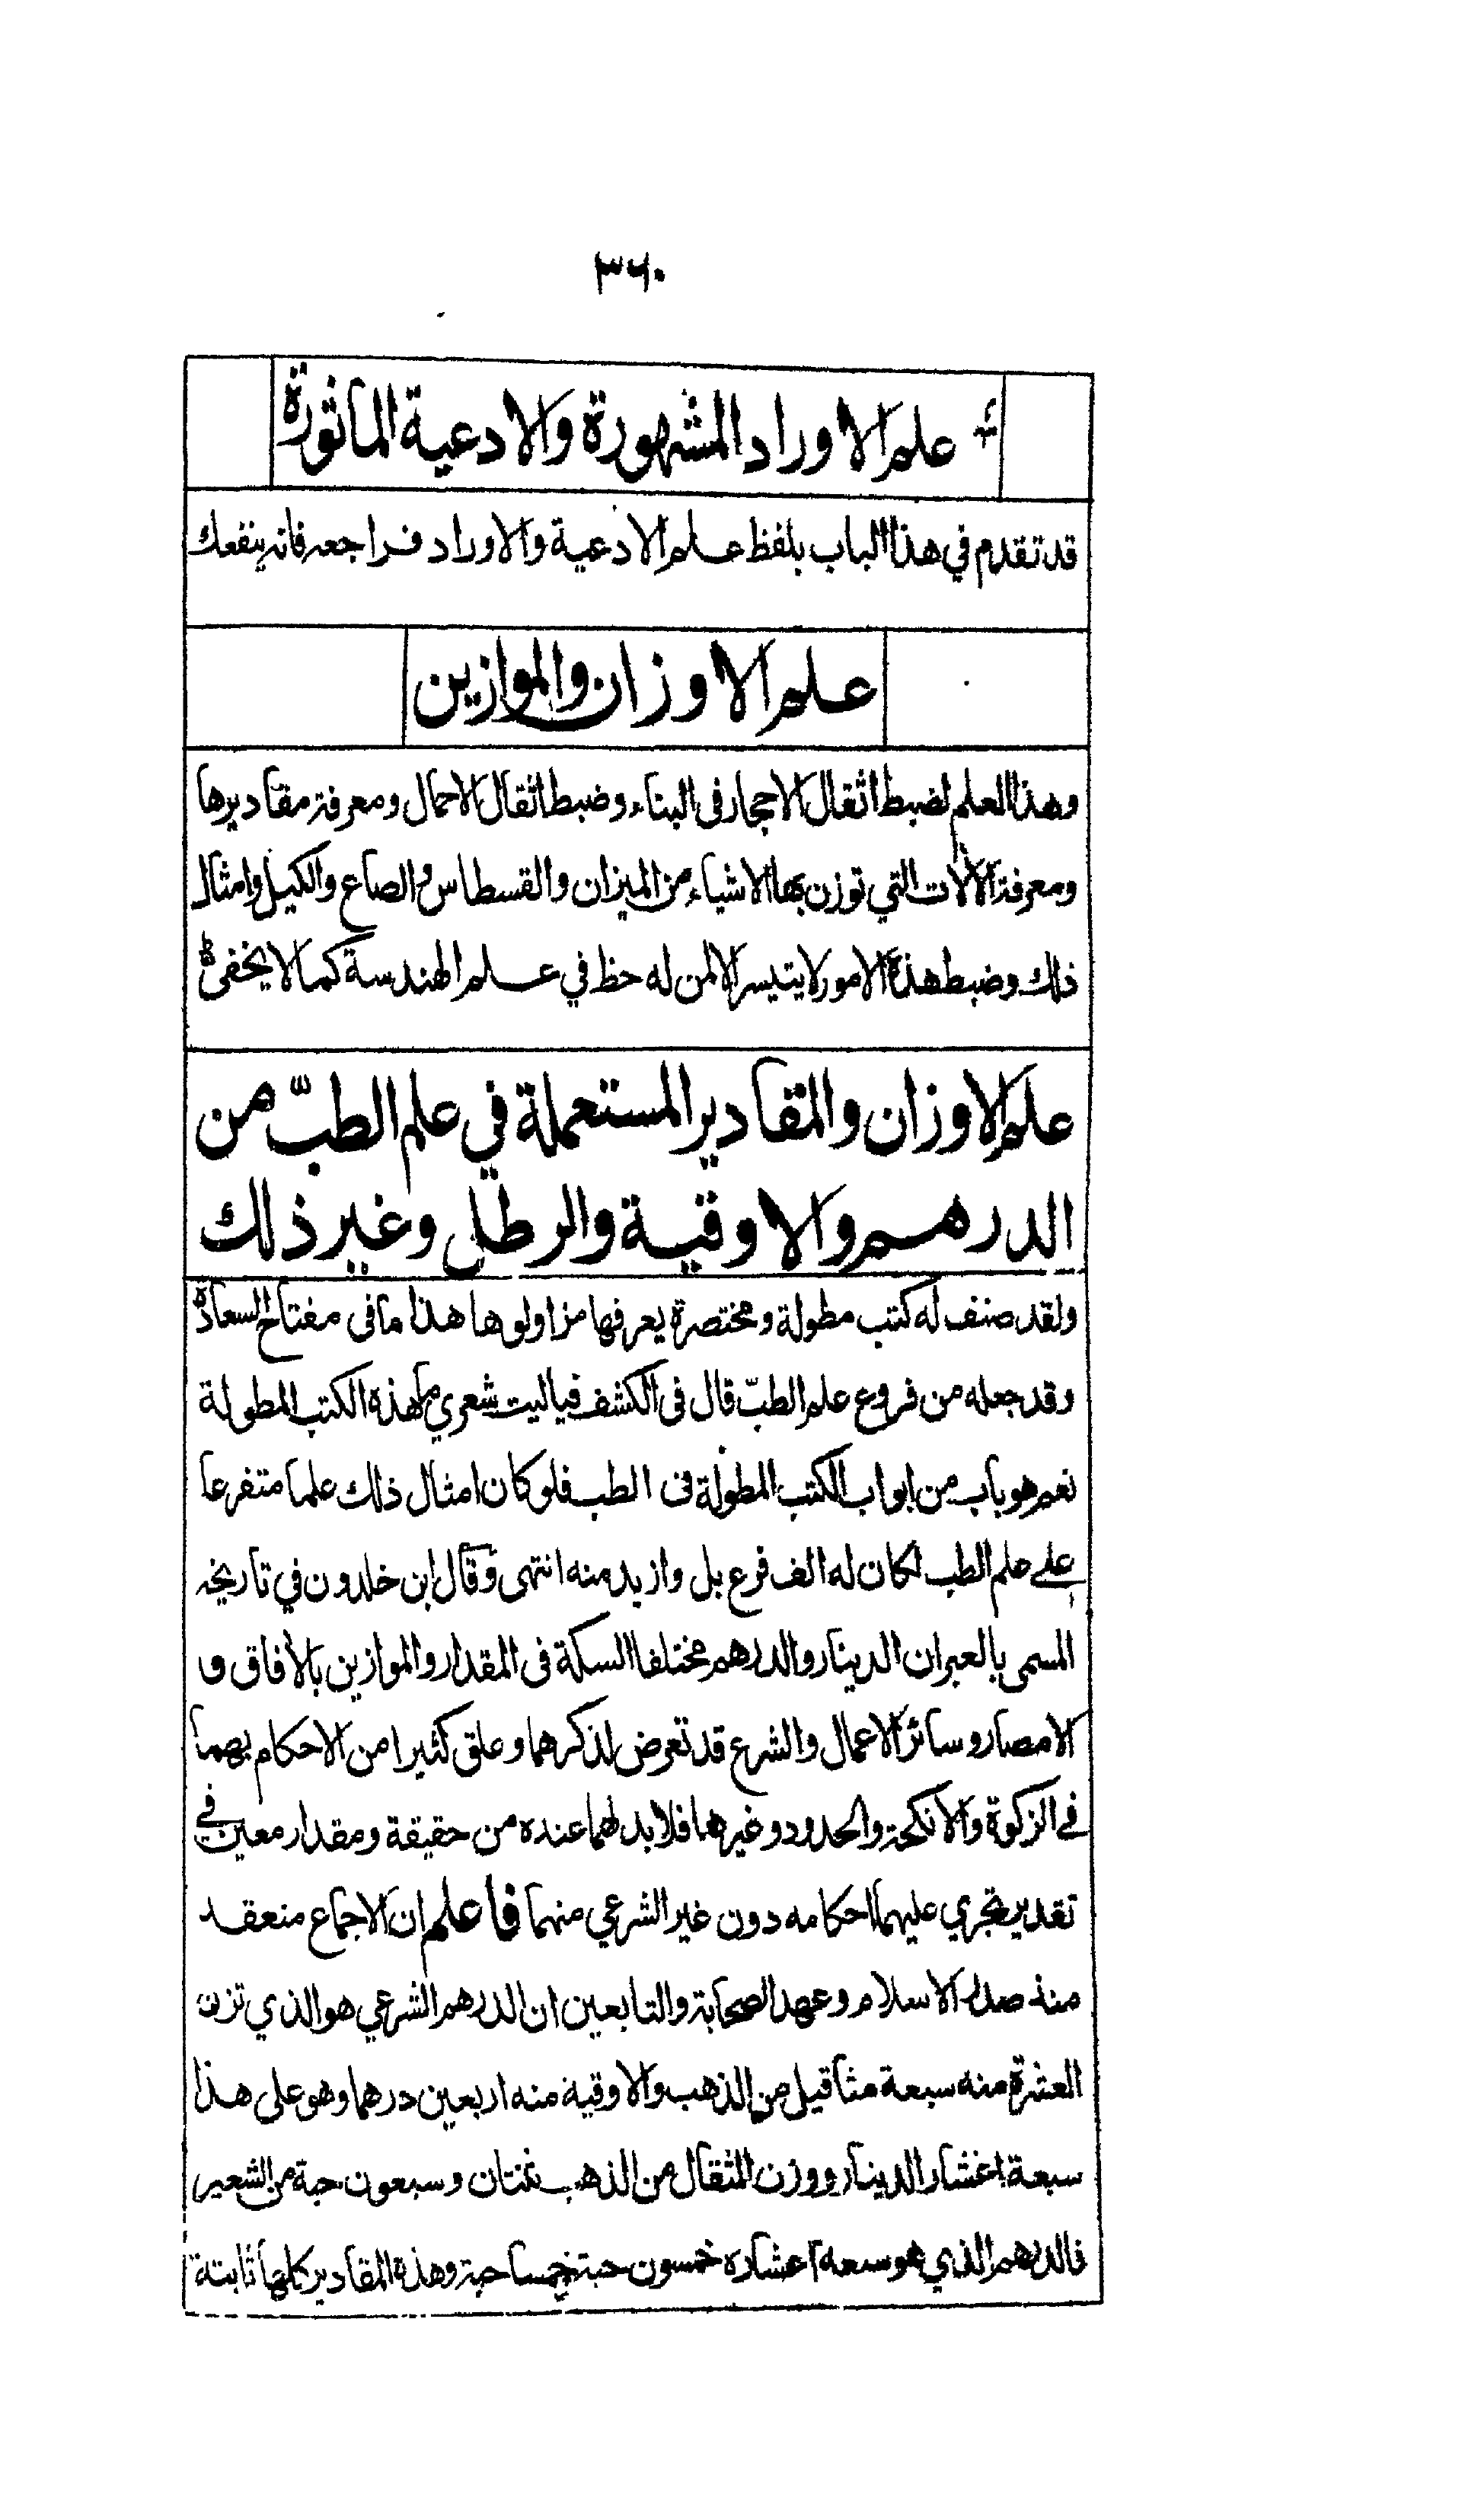 ٣٦٠
علم الاوراد المشهورة والادعية الماثورة
قد تقدم في هذا الباب بلفظ علم الادعية والاوراد فراجعه فانه ينفعك
علم الاوزان والموازين
وهذا العلم لضبط اثقال الاحجار في البناء وضبط اثقال الاحمال ومعرفة مقاديرها
ومعرفة الآلات التي توزن بها الاشياء من الميزان والقسطاس والصاع والكيل وامثال
ذلك وضبط هذه الامور لا يتيسر الا لمن له حظ في علم الهندسة كما لا يخفى
علم الاوزان والمقادير المستعملة في علم الطبّ من
الدرهم والاوقية والرطل وغير ذلك
ولقد صنف له كتب مطولة ومختصرة يعرفها مزاولوها هذا ما في مفتاح السعادة
وقد جعله من فروع علم الطبّ قال في الكشف فياليت شعري ما هذه الكتب المطولة
نعم هو باب من ابواب الكتب المطولة في الطب فلو كان امثال ذلك علما متفرعا
على علم الطب لكان له الف فرع بل وازيد منه انتهى وقال ابن خلدون في تاريخه
المسمى بالعبر ان الدينار والدرهم مختلفا السكة في المقدار والموازين بالآفاق و
الامصار وسائر الاعمال والشرع قد تعرض لذكرهما وعلق كثيرا من الاحكام بهما
في الزكوة والانكحة والحدود وغيرها فلا بد لهما عنده من حقيقة ومقدار معين في
تقدير تجري عليهما احكامه دون غير الشرعي منهما فاعلم ان الاجماع منعقد
منذ صدر الاسلام وعهد الصحابة والتابعين ان الدرهم الشرعي هو الذي تزن
العشرة منه سبعة مثاقيل من الذهب والاوقية منه اربعين درهما وهو على هذا
سبعة اعشار الدينار ووزن المثقال من الذهب ثنتان وسبعون حبة من الشعير
فالدرهم الذي هو سبعة اعشاره خمسون حبة وخمسا حبة وهذه المقادير كلها ثابتة